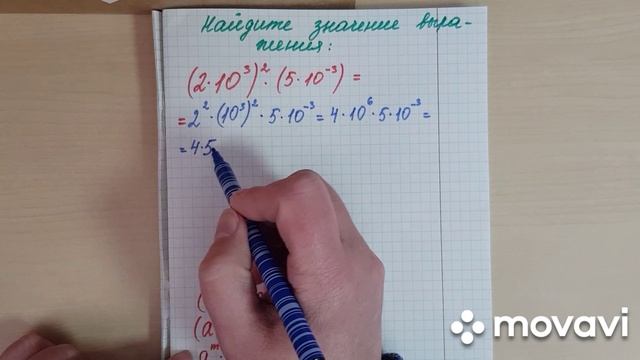 Найдите значение выра-
жения:
(2·10³)²·(5·10⁻³) =
= 2²·(10³)²·5·10⁻³ = 4·10⁶·5·10⁻³ =
= 4·5
(
(a
aᵐ
movavi